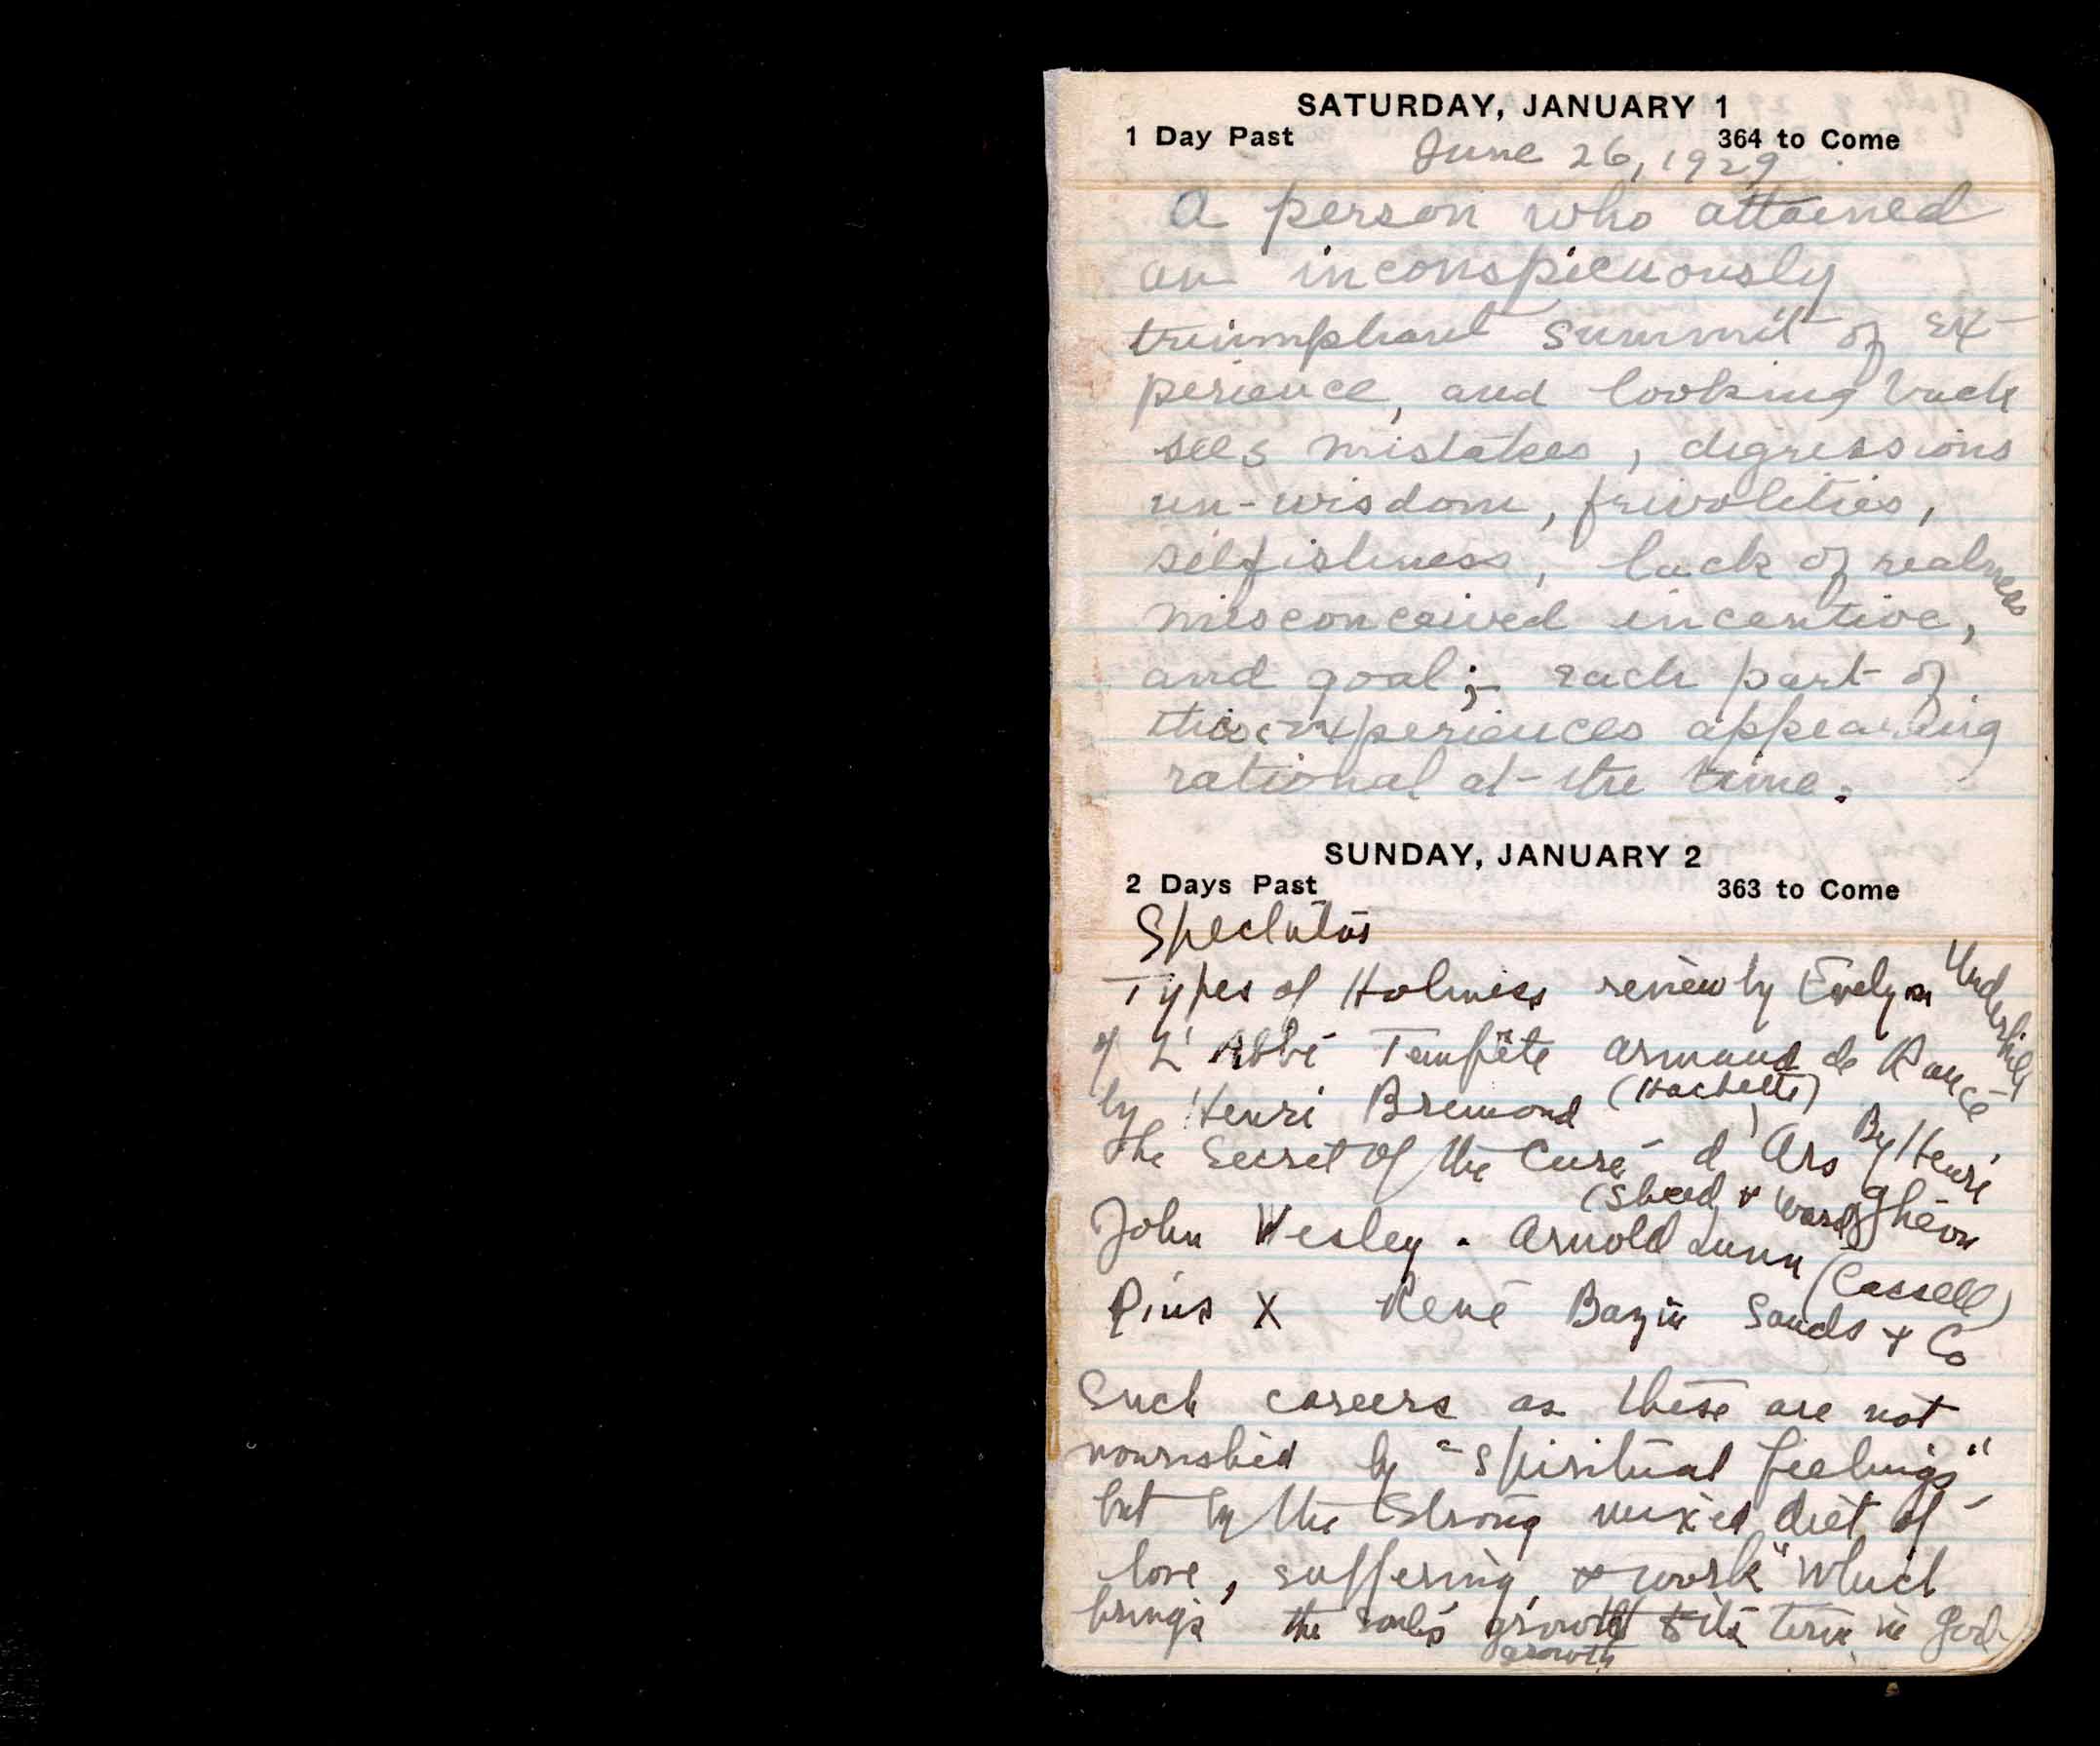 SATURDAY, JANUARY 1
1 Day Past 364 to Come
June 26, 1929
A person who attained
an inconspicuously
triumphant summit of ex-
perience, and looking back
sees mistakes, digressions
un-wisdom, frivolities,
selfishness, lack of realness
misconceived incentive,
and goal;- each part of
this experiences appearing
rational at the time.
SUNDAY, JANUARY 2
2 Days Past 363 to Come
Types of Holiness review by Evelyn Underhill
of L'Abbé Tempête Armand de Rancé
by Henri Bremond (Hachette)
The Secret of the Curé d'Ars By Henri
(Sheed & Ward) Ghéon
John Wesley - Arnold Lunn (Cassell)
Pius X René Bazin Sands & Co
Such careers as these are not
nourished by "spiritual feelings"
but by the strong mixed diet of
love, suffering, & work" which
brings the soul's growth to its term in God
growth